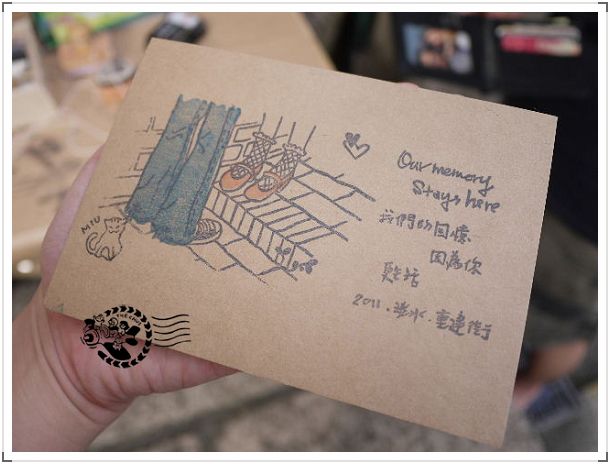 Our memory
Stays here
我們的回憶
因為你
鮮活
2011.淡水.重建街
MIU